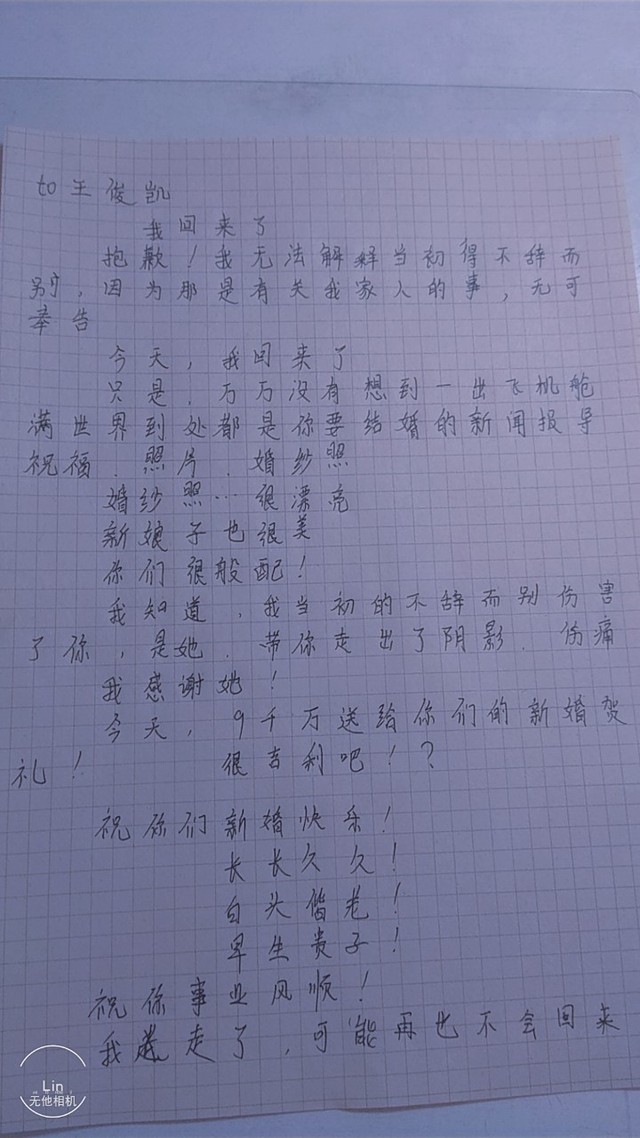 to王俊凯
我回来了
抱歉！我无法解释当初得不辞而
别，因为那是有关我家人的事，无可
奉告
今天，我回来了
只是，万万没有想到一出飞机舱
满世界到处都是你要结婚的新闻报导
祝福．照片．婚纱照
婚纱照…很漂亮
新娘子也很美
你们很般配！
我知道，我当初的不辞而别伤害
了你，是她．带你走出了阴影．伤痛
我感谢她！
今天，9千万送给你们的新婚贺
礼！ 很吉利吧！？
祝你们新婚快乐！
长长久久！
白头偕老！
早生贵子！
祝你事业风顺！
我走了，可能再也不会回来
Lin
无他相机